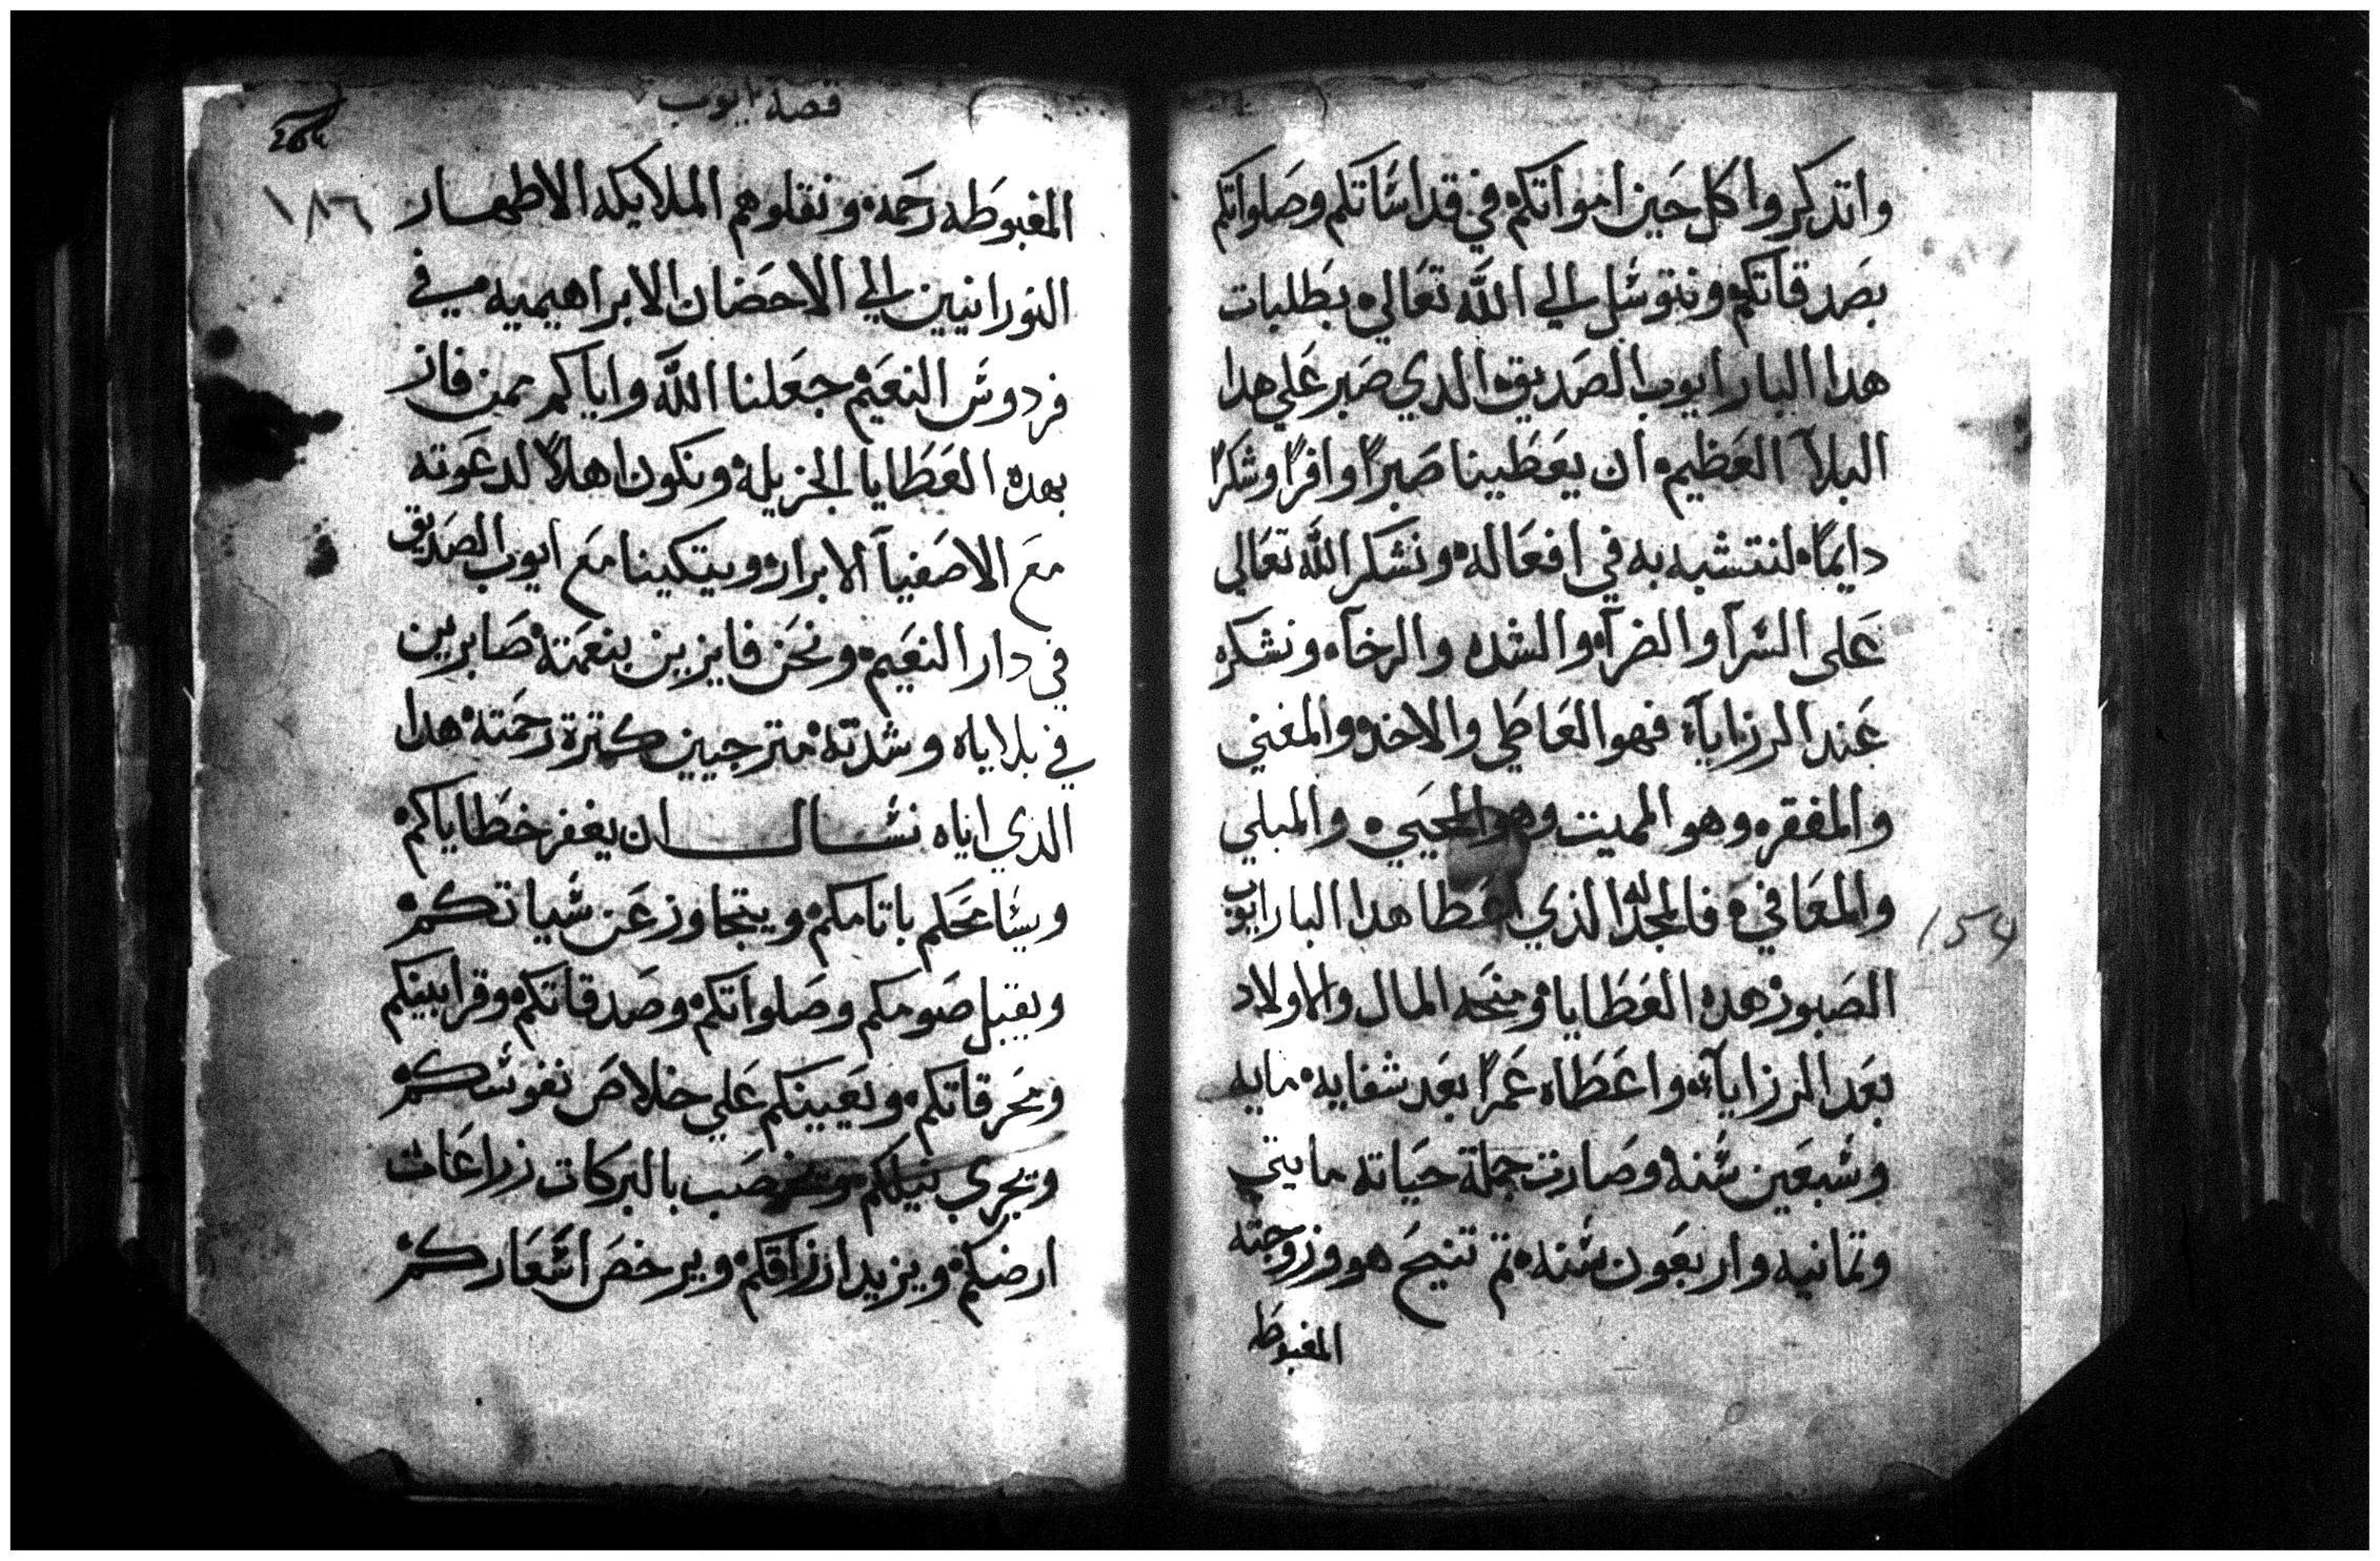 واتذكروا كل حين امواتكم في قداساتكم وصلواتكم
بصدقاتكم ونتوسل الي الله تعالي بطلبات
هدا البار ايوب الصديق الدي صبر علي هدا
البلآ العظيم ان يعطينا صبرًا وافرًا وشكرًا
دايمًا لنتشبه به في افعاله ونشكر الله تعالي
على السرآ والضرآ والشده والرخآ ونشكره
عند الرزايآ فهو العاطي والاخد والمغني
والمفقر وهو المميت وهو المحيي والمبلي
والمعافي فالمجد لله الذي اعطا هدا البار ايوب
الصبور هده العطايا ومنحه المال والاولاد
بعد الرزايآ واعطاه عمرًا بعد شفايه مايه
وسبعين سنه وصارت جملة حياته مايتي
وتمانيه واربعون سنه تم تنيح هو وزوجته
المغبوطه
154
قصة ايوب
264
١٨٦
المغبوطه رحمه ونقلوهم الملايكه الاطهار
النورانيين الي الاحضان الابراهيميه في
فردوس النعيم جعلنا الله واياكم ممن فاز
بهده العطايا الجزيله ونكون اهلاً لدعوته
مع الاصفيآ الابرار ويتكينا مع ايوب الصديق
في دار النعيم ونحن فايزين بنعمته صابرين
في بلاياه وشدته مترجيين كترة رحمته هدا
الذي اياه نسال ان يغفر خطاياكم
ويسامحكم باتامكم ويتجاوز عن سياتكم
ويقبل صومكم وصلواتكم وصدقاتكم وقرابينكم
ومحرقاتكم ويعينكم علي خلاص نفوسكم
ويجري نيلكم وتخصب بالبركات زراعات
ارضكم ويزيد ارزاقكم ويرخص اسعاركم